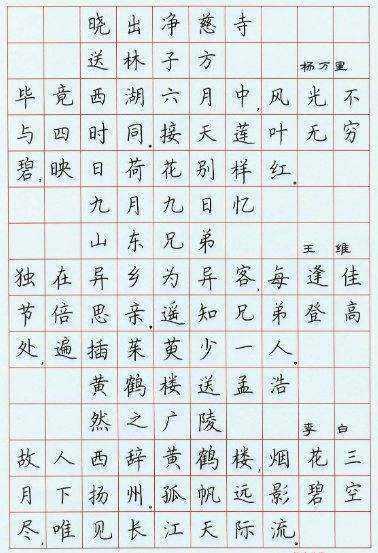 晓出净慈寺
送林子方 杨万里
毕竟西湖六月中,风光不
与四时同.接天莲叶无穷
碧,映日荷花别样红.
九月九日忆
山东兄弟 王维
独在异乡为异客,每逢佳
节倍思亲.遥知兄弟登高
处,遍插茱萸少一人.
黄鹤楼送孟浩
然之广陵 李白
故人西辞黄鹤楼,烟花三
月下扬州.孤帆远影碧空
尽,唯见长江天际流.